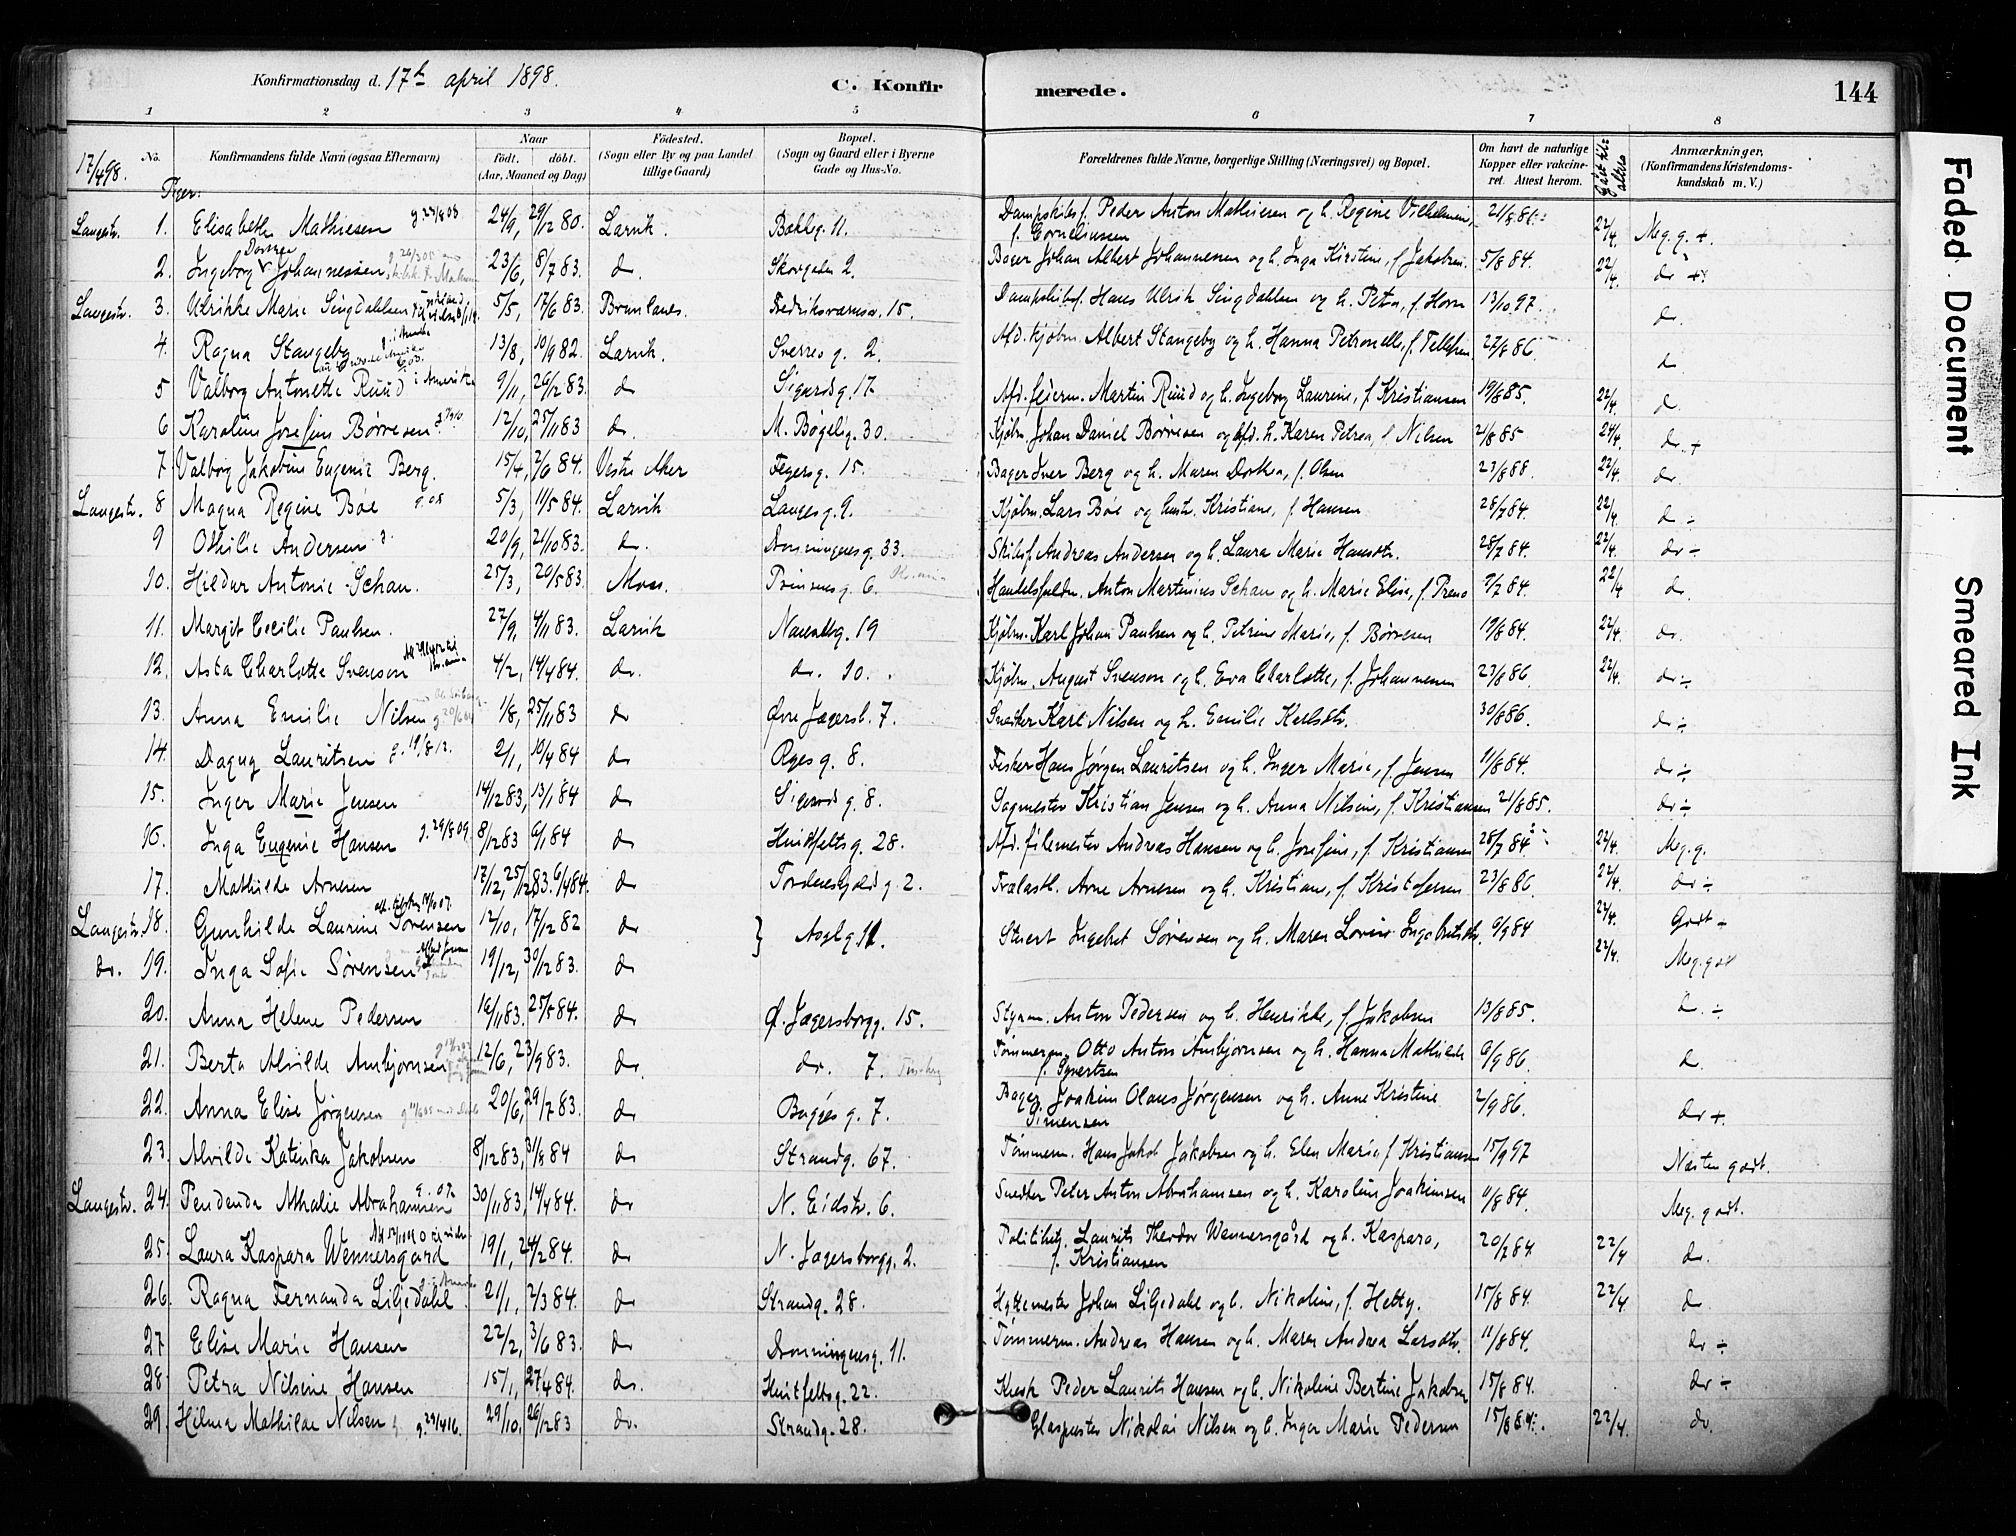 Konfirmationsdag d. 17de april 1898. C. Konfirmerede. 144
1 2 3 4 5 6 7 8
17/4 98. No. Konfirmandens fulde Navn (ogsaa Efternavn) Naar født. døbt. (Aar, Maaned og Dag) Fødested. (Sogn eller By og paa Landet tillige Gaard) Bopæl. (Sogn og Gaard eller i Byerne Gade og Hus-No. Forældrenes fulde Navne, borgerlige Stilling (Næringsvei) og Bopæl. Om havt de naturlige Kopper eller vakcineret. Attest herom. Anmærkninger. (Konfirmandens Kristendomskundskab m. V.)
Piger:
Langestr. 1. Elisabeth Mathiesen g 23/8 03 24/9, 29/12 80. Larvik. Bøkkeg. 11. Dampskibsf. Peder Anton Mathiesen og h. Regine Vilhelmine, f. Corneliussen 21/8 86. 22/4. Meg. g. +.
2. Ingeborg Dorthea Johannessen 23/6, 8/7 83. do. Skovgaden 2. Bager Johan Albert Johannessen og h. Inga Kirstine, f. Jakobsen. 5/8 84. 22/4. do +
Langestr. 3. Ulrikke Marie Singdahlsen 5/5, 17/6 83. Brunlanes. Fredriksværnsv. 15. Dampskibsf. Hans Ulrik Singdahlsen og h. Petra, f. Horn 13/10 97. do.
4. Ragna Stangeby 13/8, 10/9 82. Larvik. Sverresg. 2. Afd. kjøbm. Albert Stangeby og h. Hanna Petronelle, f. Tellefsen 27/8 86. do.
5 Valborg Antonette Ruud i Amerika 9/11, 26/12 83. do Sigurdsg. 17. Afd. feierm. Martin Ruud og h. Ingeborg Laurine, f. Kristiansen 19/8 85. 22/4. do.
6 Karoline Josefine Børresen 12/10, 25/11 83 do. M. Bøgelig. 30. Kjøbm. Johan Daniel Børresen og afd. h. Karen Petrea, f. Nilsen 2/8 85 22/4. do. +
7 Valborg Jakobine Eugenie Berg. 15/4, 2/6 84. Vestre Aker Fegersg. 15. Bager Iver Berg og h. Maren Dorthea, f. Olsen 23/8 88. 22/4. do.
Langestr. 8 Magna Regine Bøe g. 08 5/3, 11/5 84. Larvik Langesg. 9. Kjøbm. Lars Bøe og hustr. Kristiane, f. Hansen 28/7 84. 22/4. do ÷
9 Othilie Andersen 20/9, 21/10 83. do. Dronningensg. 33. Skibsf. Andreas Andersen og h. Laura Marie Hansdtr. 28/7 84. 22/4. do ÷
10. Hildur Antonie Schau. 25/3, 20/5 83. Moss. Prinsensg. 6 Handelsfuldm. Anton Martinius Schau og h. Marie Elise, f. 22/4 do.
11. Margit Cecilie Paulsen. 27/9, 4/11 83. Larvik Nansetg. 19 Kjøbm. Karl Johan Paulsen og h. Petrine Marie, f. Børresen 19/8 84. 22/4. do.
12. Asta Charlotte Svenson 4/2, 14/4 84. do. do. 10. Kjøbm. August Svenson og h. Eva Charlotte, f. Johannesen 23/8 86. 22/4. do ÷
13. Anna Emilie Nilsen 1/8, 25/11 83 do Øvre Jægersb. 7. Snedker Karl Nilsen og h. Emilie Karlsdtr. 30/8 86. do ÷
14. Dagny Lauritsen g. 19/8 12. 2/1, 10/4 84 do Rygesg. 8. Fisker Hans Jørgen Lauritsen og h. Inger Marie, f. Jensen 11/8 84. do ÷
15. Inger Marie Jensen 14/12 83, 13/1 84 do Sigurdsg. 8. Sagmester Kristian Jensen og h. Anna Nilsine, f. Kristiansen 21/8 85. do ÷
16. Inga Eugenie Hansen g. 29/8 09. 8/12 83 6/1 84 do Huitfeltsg. 28. Afd. filemester Andreas Hansen og h. Josefine, f. Kristiansen 28/7 84. 22/4. Meg. g.
17. Mathilde Arnesen 17/12, 25/12 83. 6/4 84. do Tordenskjoldsg. 2. Trælastl. Arne Arnesen og h. Kristiane, f. Kristofersen 23/8 86 22/4. do ÷
Langestr. 18. Gunhilde Laurine Sørensen 12/10, 17/12 82 do } Aaslyg 11. Stuert Ingebret Sørensen og h. Maren Lovise Ingebretsdtr. 9/9 84 22/4. Godt ÷
do. 19. Inga Sofie Sørensen 19/12, 30/12 83. do 22/4. Meg. godt
20. Anna Helene Pedersen 16/11 83. 25/5 84. do Ø. Jægersborgg. 15. Styrm. Anton Pedersen og h. Henrikke, f. Jakobsen 13/8 85. do. ÷
21. Berta Alvilde Ambjørnsen 12/6, 23/9 83. do. do. 7. Tømmerm. Otto Anton Ambjørnsen og h. Hanna Mathilde f. Syvertsen 6/9 86. do.
22. Anna Elise Jørgensen 20/6, 29/7 83. do Buggesg. 7. Bager Joakim Olaus Jørgensen og h. Anne Kristine Simensen 2/9 86. do +.
23. Alvilde Katinka Jakobsen 8/12 83, 31/8 84 do Strandg. 67. Tømmerm. Hans Jakob Jakobsen og h. Elen Marie, f. Kristiansen 15/9 97 Næsten godt.
Langestr. 24. Pendenda Athalie Abrahamsen g. 07. 30/11 83, 14/4 84. do N. Eidstr. 6. Snedker Peter Anton Abrahamsen og h. Karoline Joakimsen 11/8 84. Meg. godt.
25. Laura Kaspara Wennersgaard 19/1, 24/2 84. do N. Jægersborgg. 2. Politibetj. Laurits Theodor Wennersgård og h. Kaspara, f. Kristiansen 20/7 84 22/4 do.
26. Ragna Fernanda Liljedahl. 21/1, 2/3 84. do Strandg. 28. Hyttemester Johan Liljedahl og h. Nikoline, f. Hetty. 15/8 84. 22/4. do
27 Elise Marie Hansen 22/2, 3/6 83. do Dronningensg. 11. Tømmerm. Andreas Hansen og h. Maren Andrea Larsdtr. 11/8 84. do ÷
28 Petra Nilsine Hansen 15/1, 27/4 84. do. Huitfeltsg. 22. Kusk Peder Laurits Hansen og h. Nikoline Bertine Jakobsen 15/8 84. do ÷
29. Hilma Mathilde Nilsen g. 29/4 16. 29/10, 26/12 83 do. Strandg. 28. Glaspuster Nikolai Nilsen og h. Inger Marie Pedersen 15/8 84. 22/4. do.
Faded Document
Smeared Ink